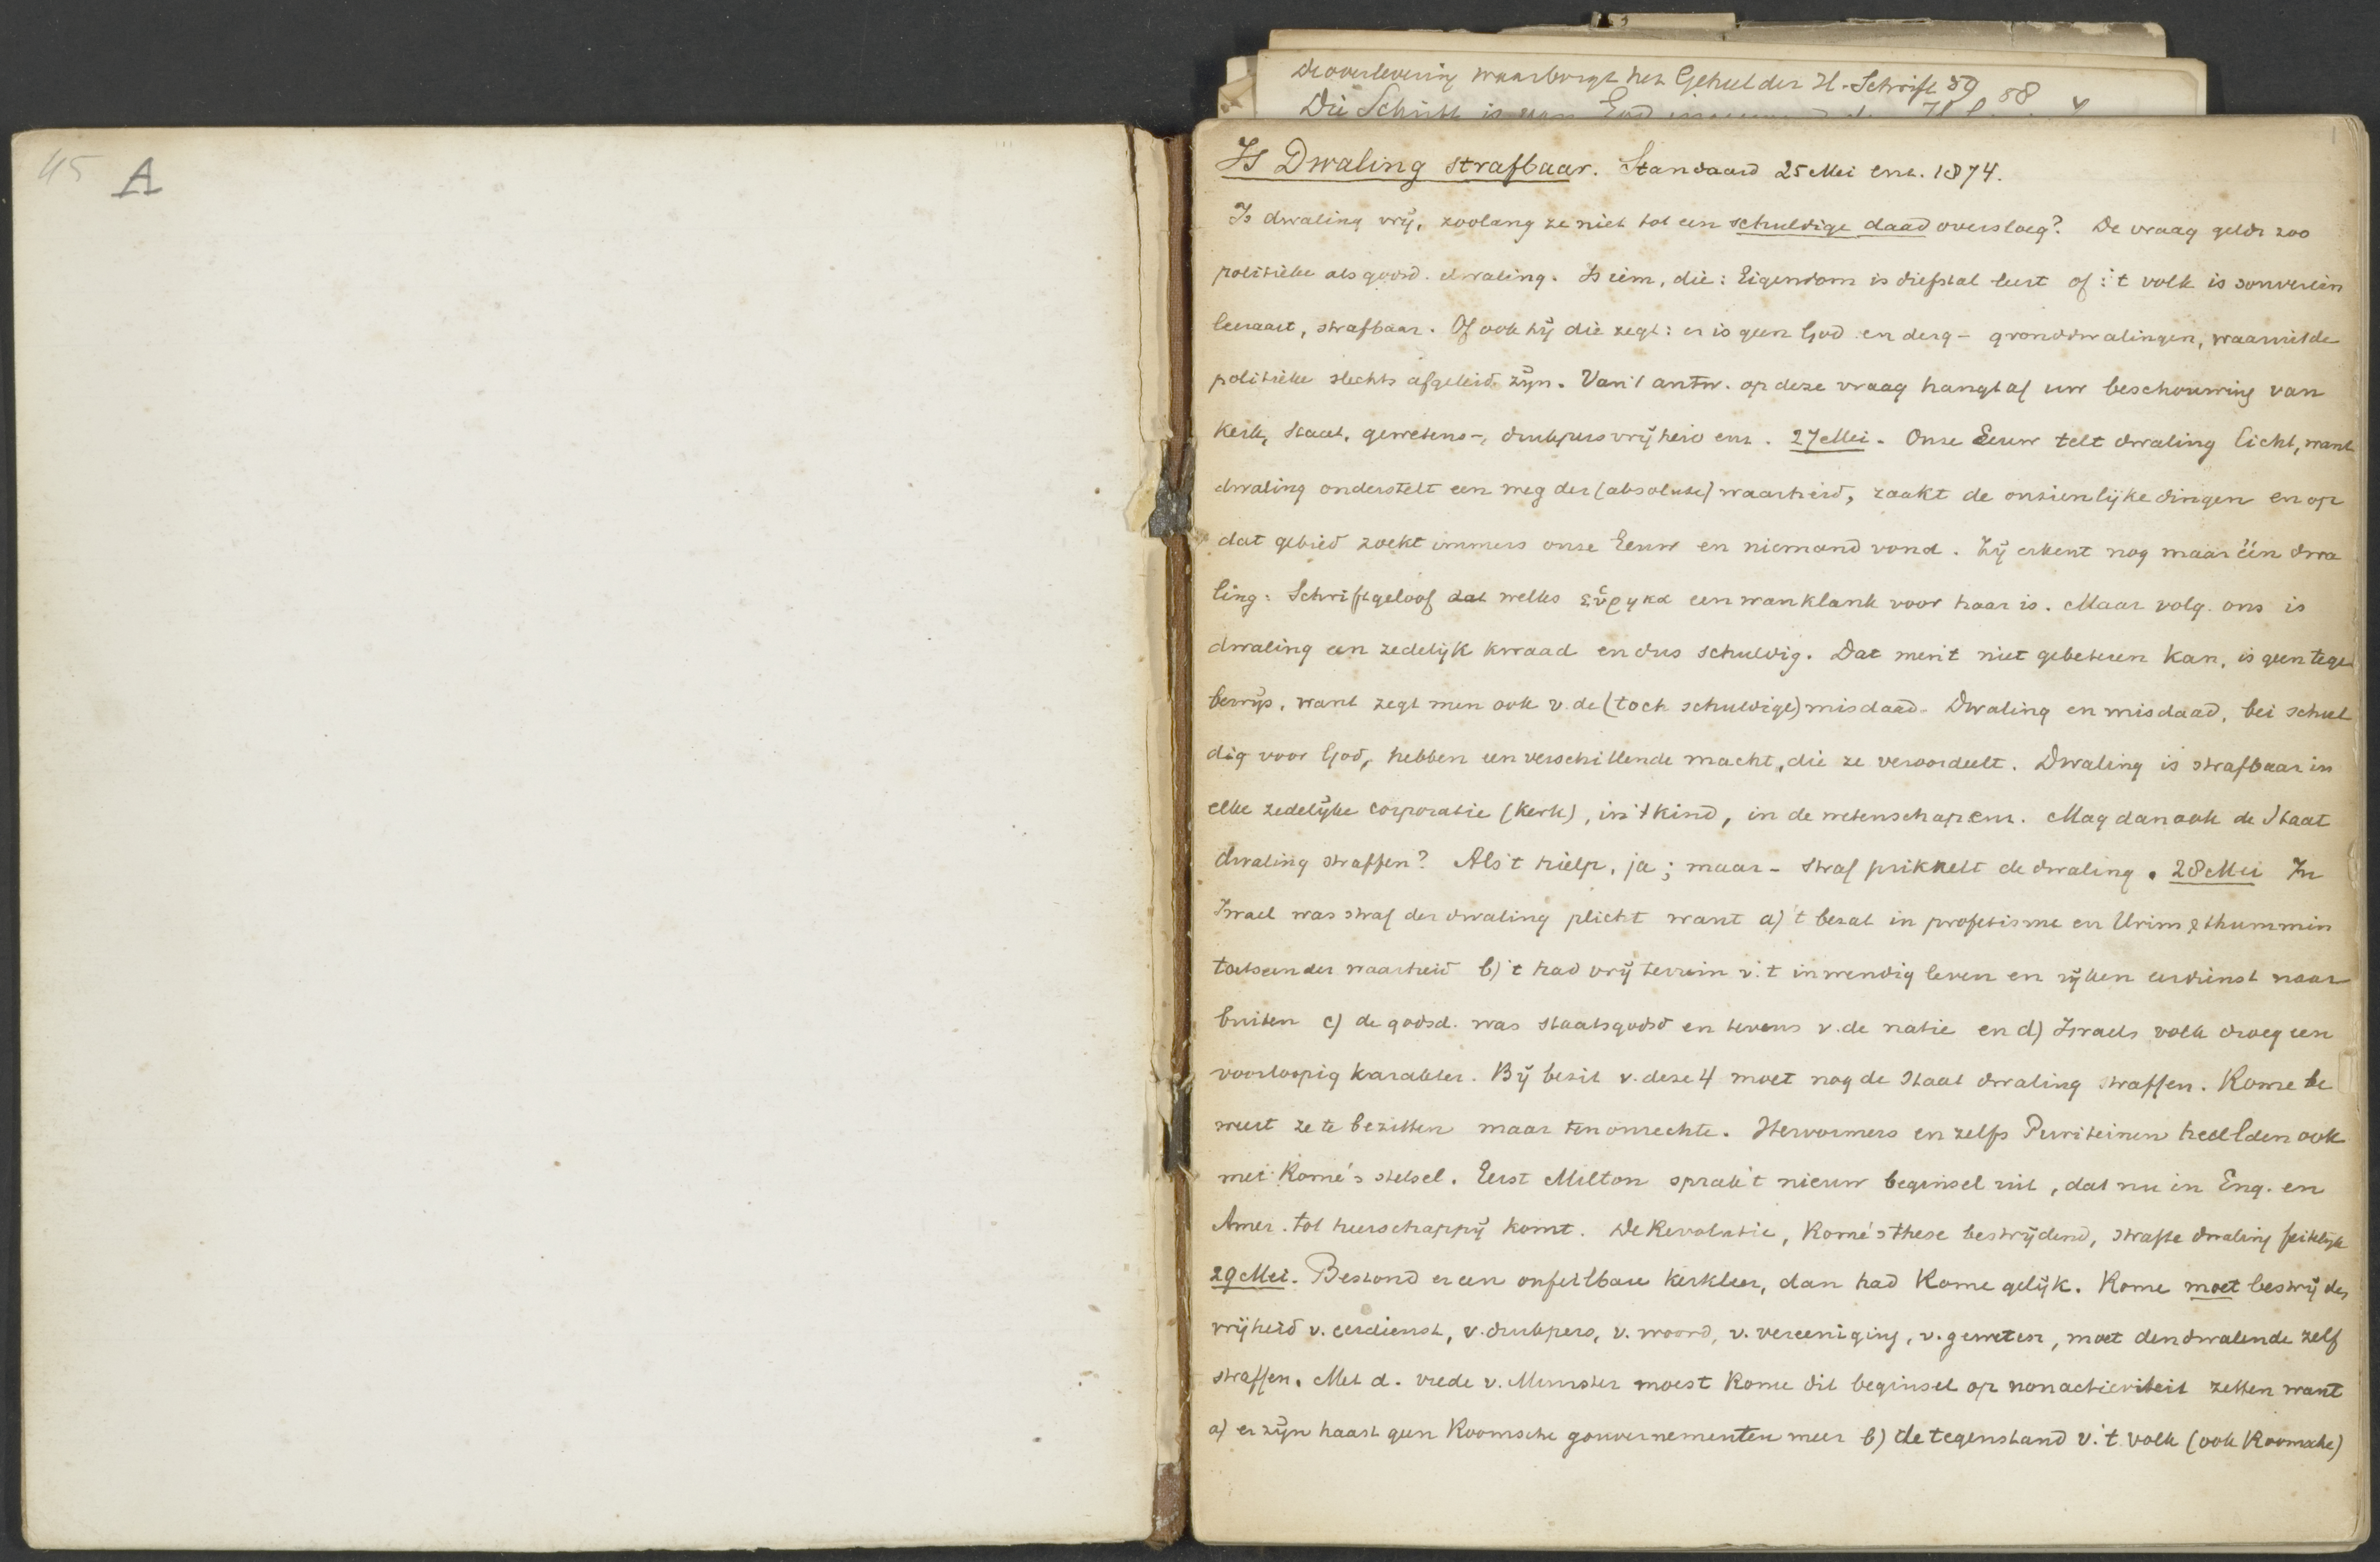 45 A
De overlevering waarborgt het Geheel der H. Schrift 59 88
Die Schrift is van God
1
Is Dwaling strafbaar. Standaard 25 Mei enz. 1874.
Is dwaling vrij, zoolang ze niet tot een schuldige daad oversloeg? De vraag geldt zoo
politieke als godsd. dwaling. Is iem, die: Eigendom is diefstal leert of: 't volk is souverein
leeraart, strafbaar. Of ook hij die zegt: er is geen God en derg - gronddwalingen, waaruit de
politieke slechts afgeleid zijn. Van 't antw. op deze vraag hangt af uw beschouwing van
Kerk, Staat, gewetens-, drukpersvrijheid enz. 27 Mei. Onze Eeuw telt dwaling licht, want
dwaling onderstelt een weg der (absolute) waarheid, raakt de onzienlijke dingen en op
dat gebied zoekt immers onze Eeuw en niemand vond. Zij erkent nog maar één dwa
ling: Schriftgeloof dat welks εὕρηκα een wanklank voor haar is. Maar volg. ons is
dwaling een zedelijk kwaad en dus schuldig. Dat men 't niet gebeteren kan, is geen tegen
bewijs, want zegt men ook v. de (toch schuldige) misdaad. Dwaling en misdaad, bei schul
dig voor God, hebben een verschillende macht, die ze veroordeelt. Dwaling is strafbaar in
elke zedelijke corporatie (Kerk), in 't kind, in de wetenschap enz. Mag dan ook de Staat
dwaling straffen? Als 't hielp, ja; maar - straf prikkelt de dwaling. 28 Mei In
Israel was straf der dwaling plicht want a) 't bezat in profetisme en Urim & thummim
toetssteen der waarheid b) 't had vrij terrein v. 't inwendig leven en rijken eerdienst naar
buiten c) de godsd. was staatsgodsd en tevens v. de natie en d) Israels volk droeg een
voorloopig karakter. Bij bezit v. deze 4 moet nog de Staat dwaling straffen. Rome be
weert ze te bezitten maar ten onrechte. Hervormers en zelfs Puriteinen heelden ook
met Rome's stelsel. Eerst Milton sprak 't nieuw beginsel uit, dat nu in Eng. en
Amer. tot heerschappij komt. De Revolutie, Rome's these bestrijdend, strafte dwaling feitelijk
29 Mei. Bestond er een onfeilbare kerkleer, dan had Rome gelijk. Rome moet bestrijden
vrijheid v. eerdienst, v. drukpers, v. woord, v. vereeniging, v. geweten, moet den dwalende zelf
straffen. Met d. vrede v. Munster moest Rome dit beginsel op nonactieviteit zetten want
a) er zijn haast geen Roomsche gouvernementen meer b) de tegenstand v. 't volk (ook Roomsche)